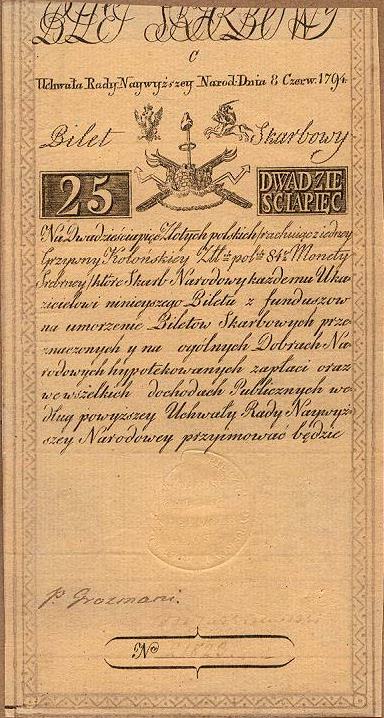 BILET SKARBOWY
C
Uchwała Rady Naywyższey Narod: Dnia 8 Czerw. 1794.
Bilet Skarbowy
25
DWADZIE
SCIAPIĘC
Na Dwadzieściapięc Złotych polskich rachuiąc z iedney
Grzywny Kolońskiey Złt: pols: 84½ Monety
Srebrney, które Skarb Narodowy każdemu Uka
zicielowi ninieyszego Biletu z funduszow
na umorzenie Biletów Skarbowych prze
znaczonych y na ogólnych Dobrach Na
rodowych hypotekowanych zapłaci oraz
we wszelkich dochodach Publicznych we
dług powyższey Uchwały Rady Naywyż-
szey Narodowey przyimować będzie
P. Grozmani.
No